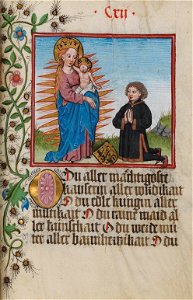 Cxii
O Du aller mächtigoste
kaiserin aller wirdikait
O du edle kungin aller
O Du raine maid al
ler künschait O du werde mu
ter aller barmhertzikait O du